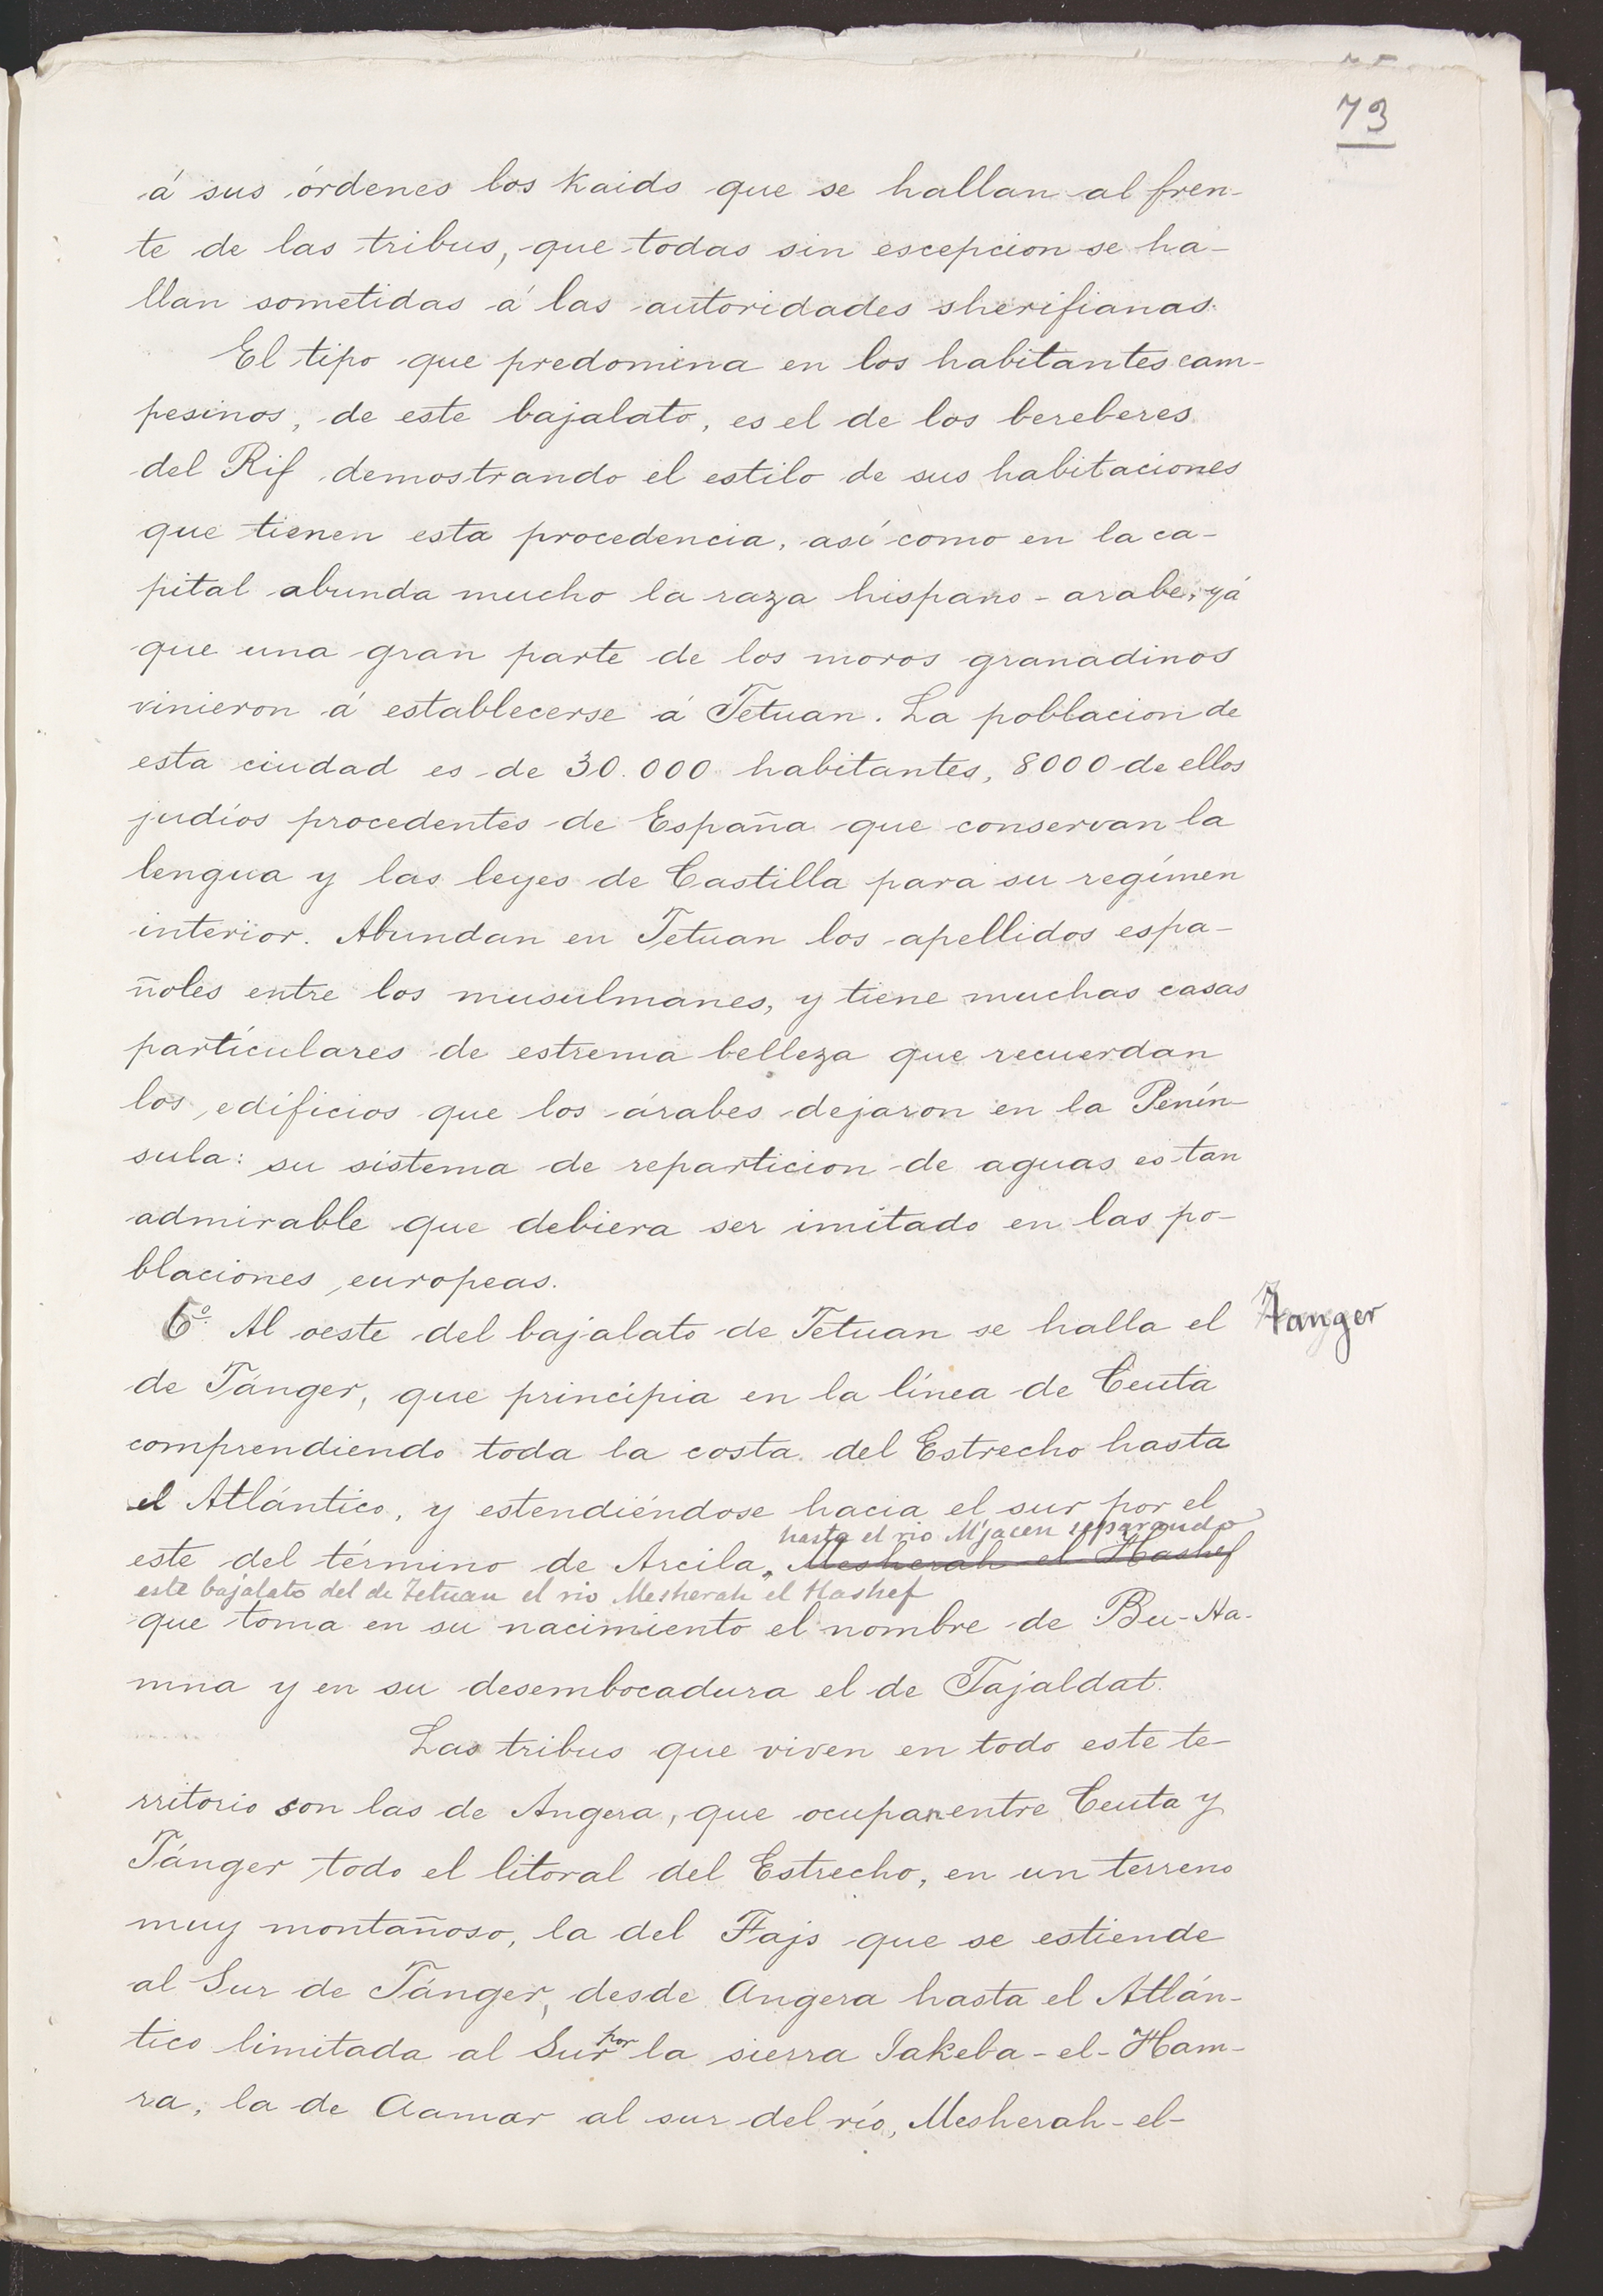 73
á sus órdenes los Kaids que se hallan al fren-
te de las tribus, que todas sin escepcion se ha-
llan sometidas á las autoridades sherifianas.
El tipo que predomina en los habitantes cam-
pesinos, de este bajalato, es el de los bereberes
del Rif demostrando el estilo de sus habitaciones
que tienen esta procedencia, así como en la ca-
pital abunda mucho la raza hispano-arabe, yá
que una gran parte de los moros granadinos
vinieron á establecerse á Tetuan. La poblacion de
esta ciudad es de 30.000 habitantes, 8000 de ellos
judíos procedentes de España que conservan la
lengua y las leyes de Castilla para su regímen
interior. Abundan en Tetuan los apellidos espa-
ñoles entre los musulmanes, y tiene muchas casas
partículares de estrema belleza que recuerdan
los edíficios que los árabes dejaron en la Penín-
sula: su sistema de reparticion de aguas es tan
admirable que debiera ser imitado en las po-
blaciones europeas.
6º. Al oeste del bajalato de Tetuan se halla el
Tanger
de Tánger, que principia en la línea de Ceuta
comprendiendo toda la costa del Estrecho hasta
el Atlántico, y estendiéndose hacia el sur por el
hasta el rio M'jacen separando
este del término de Arcila, Mesherah el Hashef
este bajalato del de Tetuan el rio Mesherah el Hashef
que toma en su nacimiento el nombre de Bu-Ha-
mna y en su desembocadura el de Tajaldat.
Las tribus que viven en todo este te-
rritorio son las de Angera, que ocupan entre Ceuta y
Tánger todo el litoral del Estrecho, en un terreno
muy montañoso, la del Fajs que se estiende
al Sur de Tánger, desde Angera hasta el Atlán-
tico limitada al Sur por la sierra Jakeba-el-Ham-
ra, la de Aamar al sur del río, Mesherah-el-